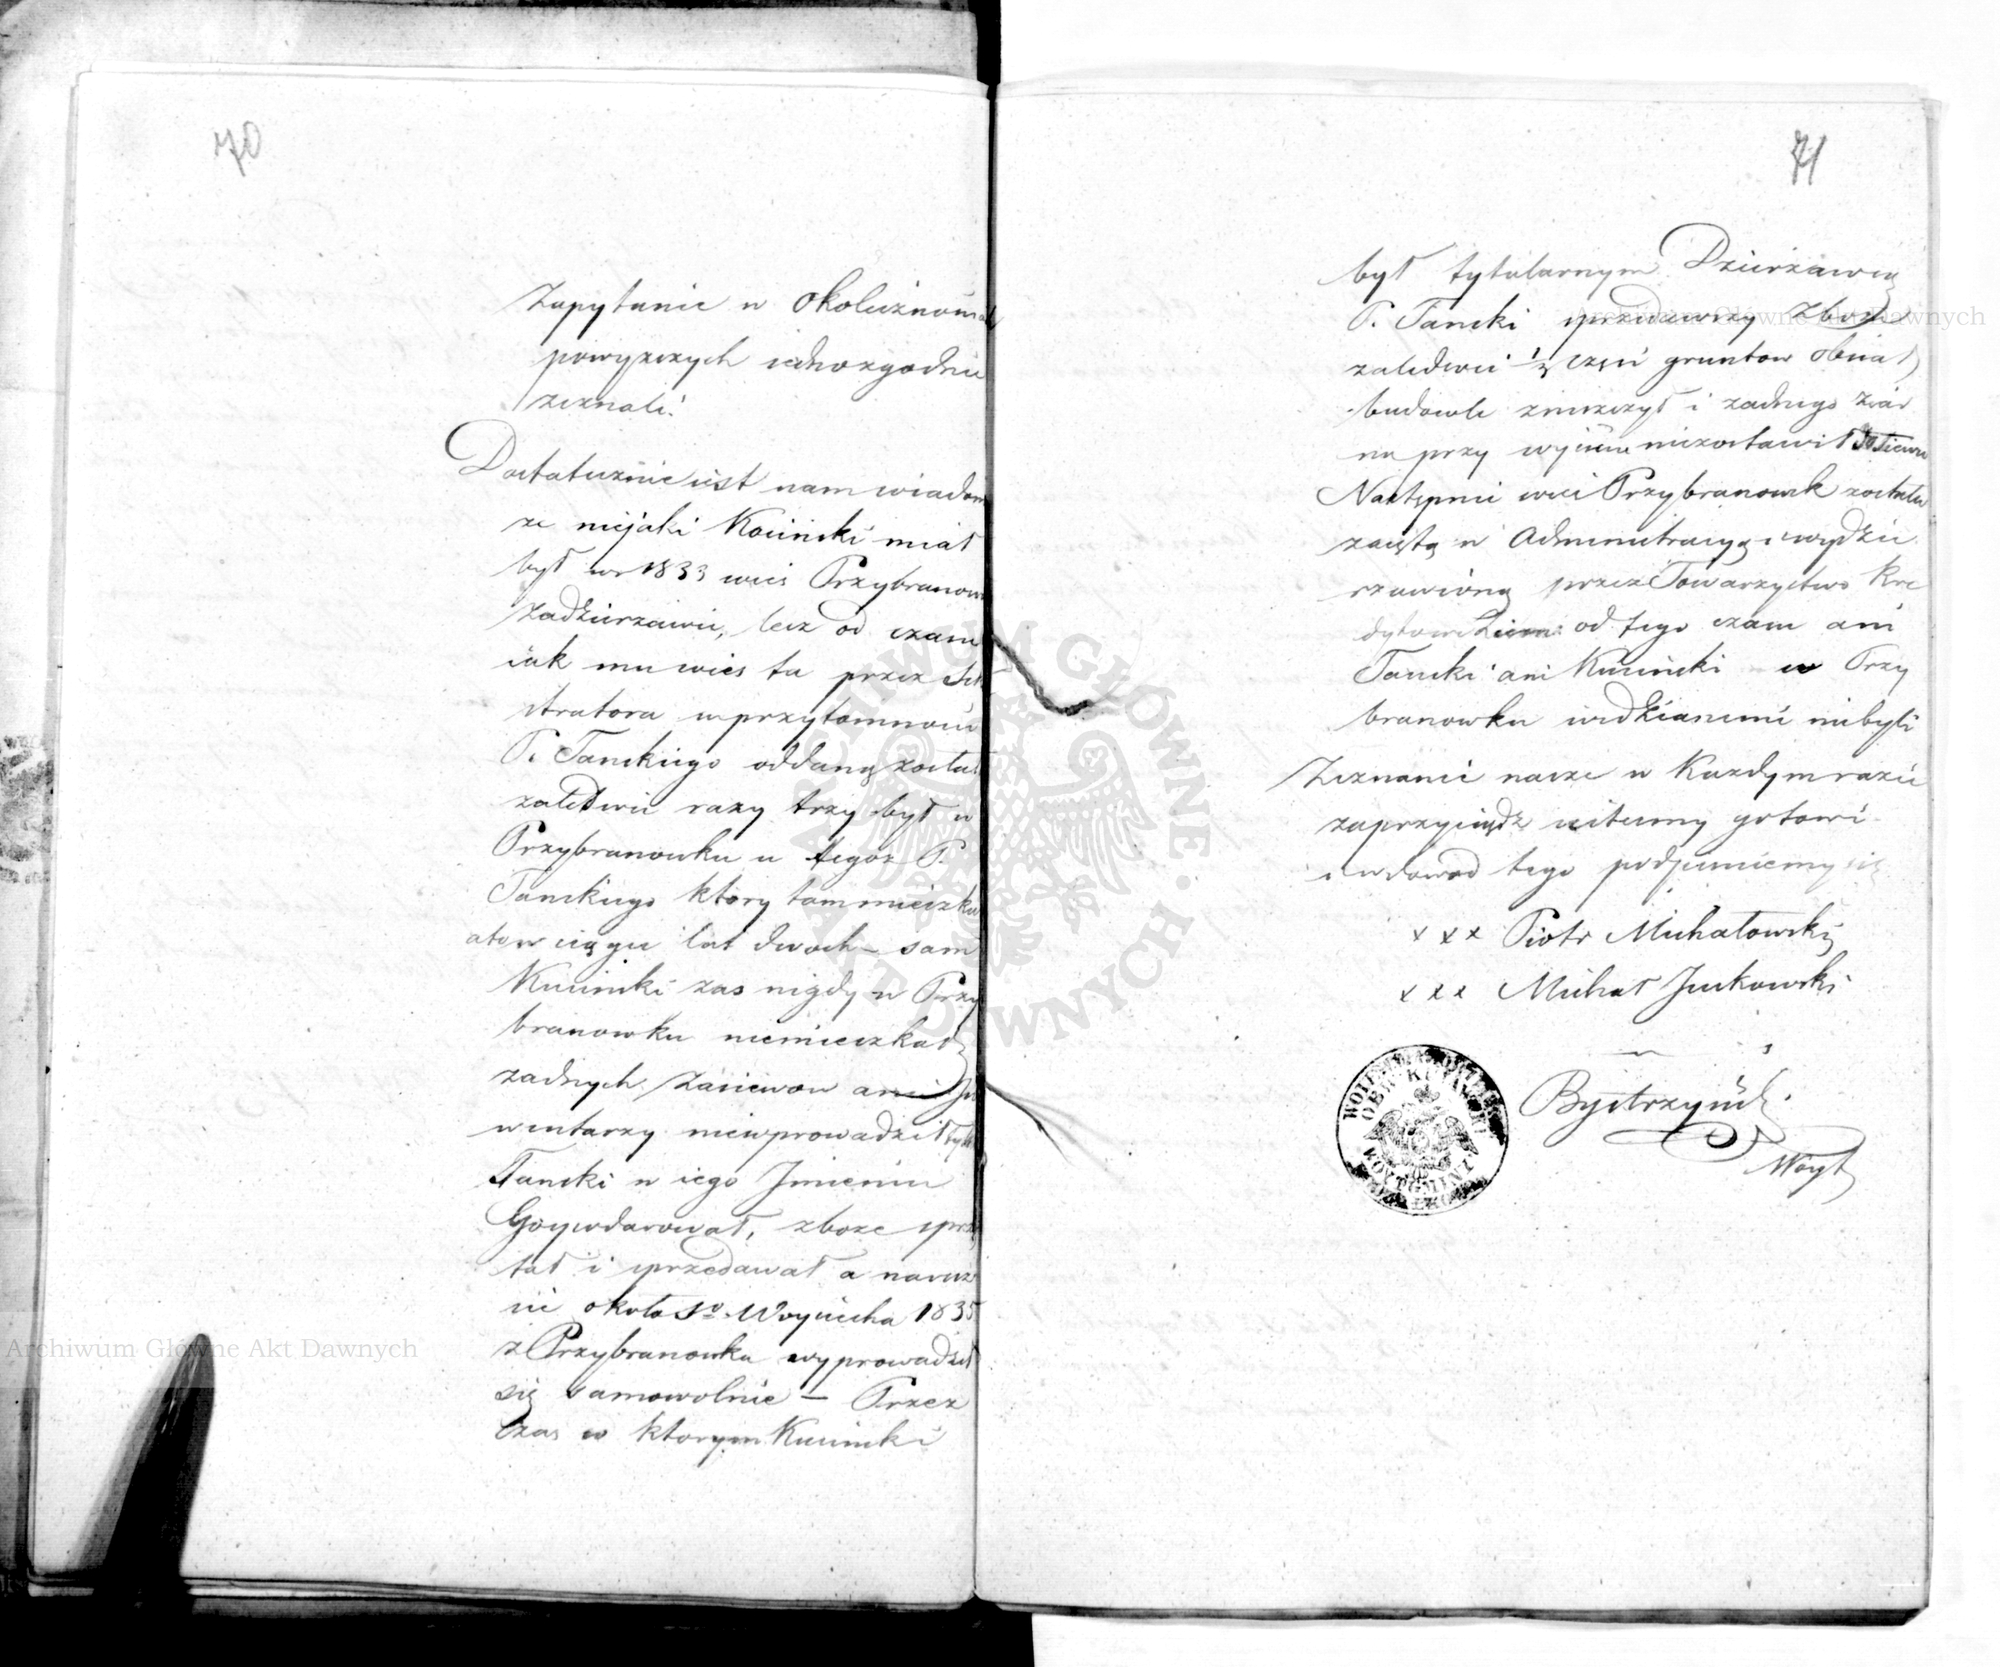 70
Zapytanie w okoliczności
powyższych iednozgodnie
zeznali:
Dostatecznie iest nam wiadom
ze niejaki Kosinski miał
był w r 1833 wieś Przybranow
zadzierzawić, lecz od czasu
iak mu wieś ta przez Sek
stratora w przytomności
P. Tanskiego oddaną został
zaledwie razy trzy był w
Przybranowku u tegoż P.
Tanskiego ktory tam mieszk
ał w ciągu lat dwoch – sam
Kucinski zas nigdy w Przy
branowku niemieszkał
zadnych Zasiewow ani In
wentarzy niewprowadził tylk
Tanski w iego Jmieniu
Gospodarował, zboze sprz
tał i sprzedawał a naresz
cie około So Woyciecha 1835
z Przybranowka wyprowadził
się samowolnie – Przez
czas w ktorym Kucinski
71
był tytularnym Dzierzawcą
P. Tanski sprzedawszy Zboze
zaledwie 1/3 część gruntow obsiał
budowle zniszczył i zadnego ziar
na przy wyiściu niezostawił
Następnie wieś Przybranowek została
zaiętą w Administracyą i wydzie
rzawioną przez Towarzystwo Kre
dytowe Ziem: od tego czasu ani
Tanski ani Kucinski w Przy
branowku widzianemi niebyli
Zeznanie nasze w Kazdym razie
zaprzysiądz iestesmy gotowi
i w dowod tego podpisuiemy się
x x x Piotr Michałowski
x x x Michał Jackowski
Bystrzyński
Woyt
WOJT GMINY
Archiwum Główne Akt Dawnych
Archiwum Główne Akt Dawnych
ARCHIWUM GŁÓWNE AKT DAWNYCH